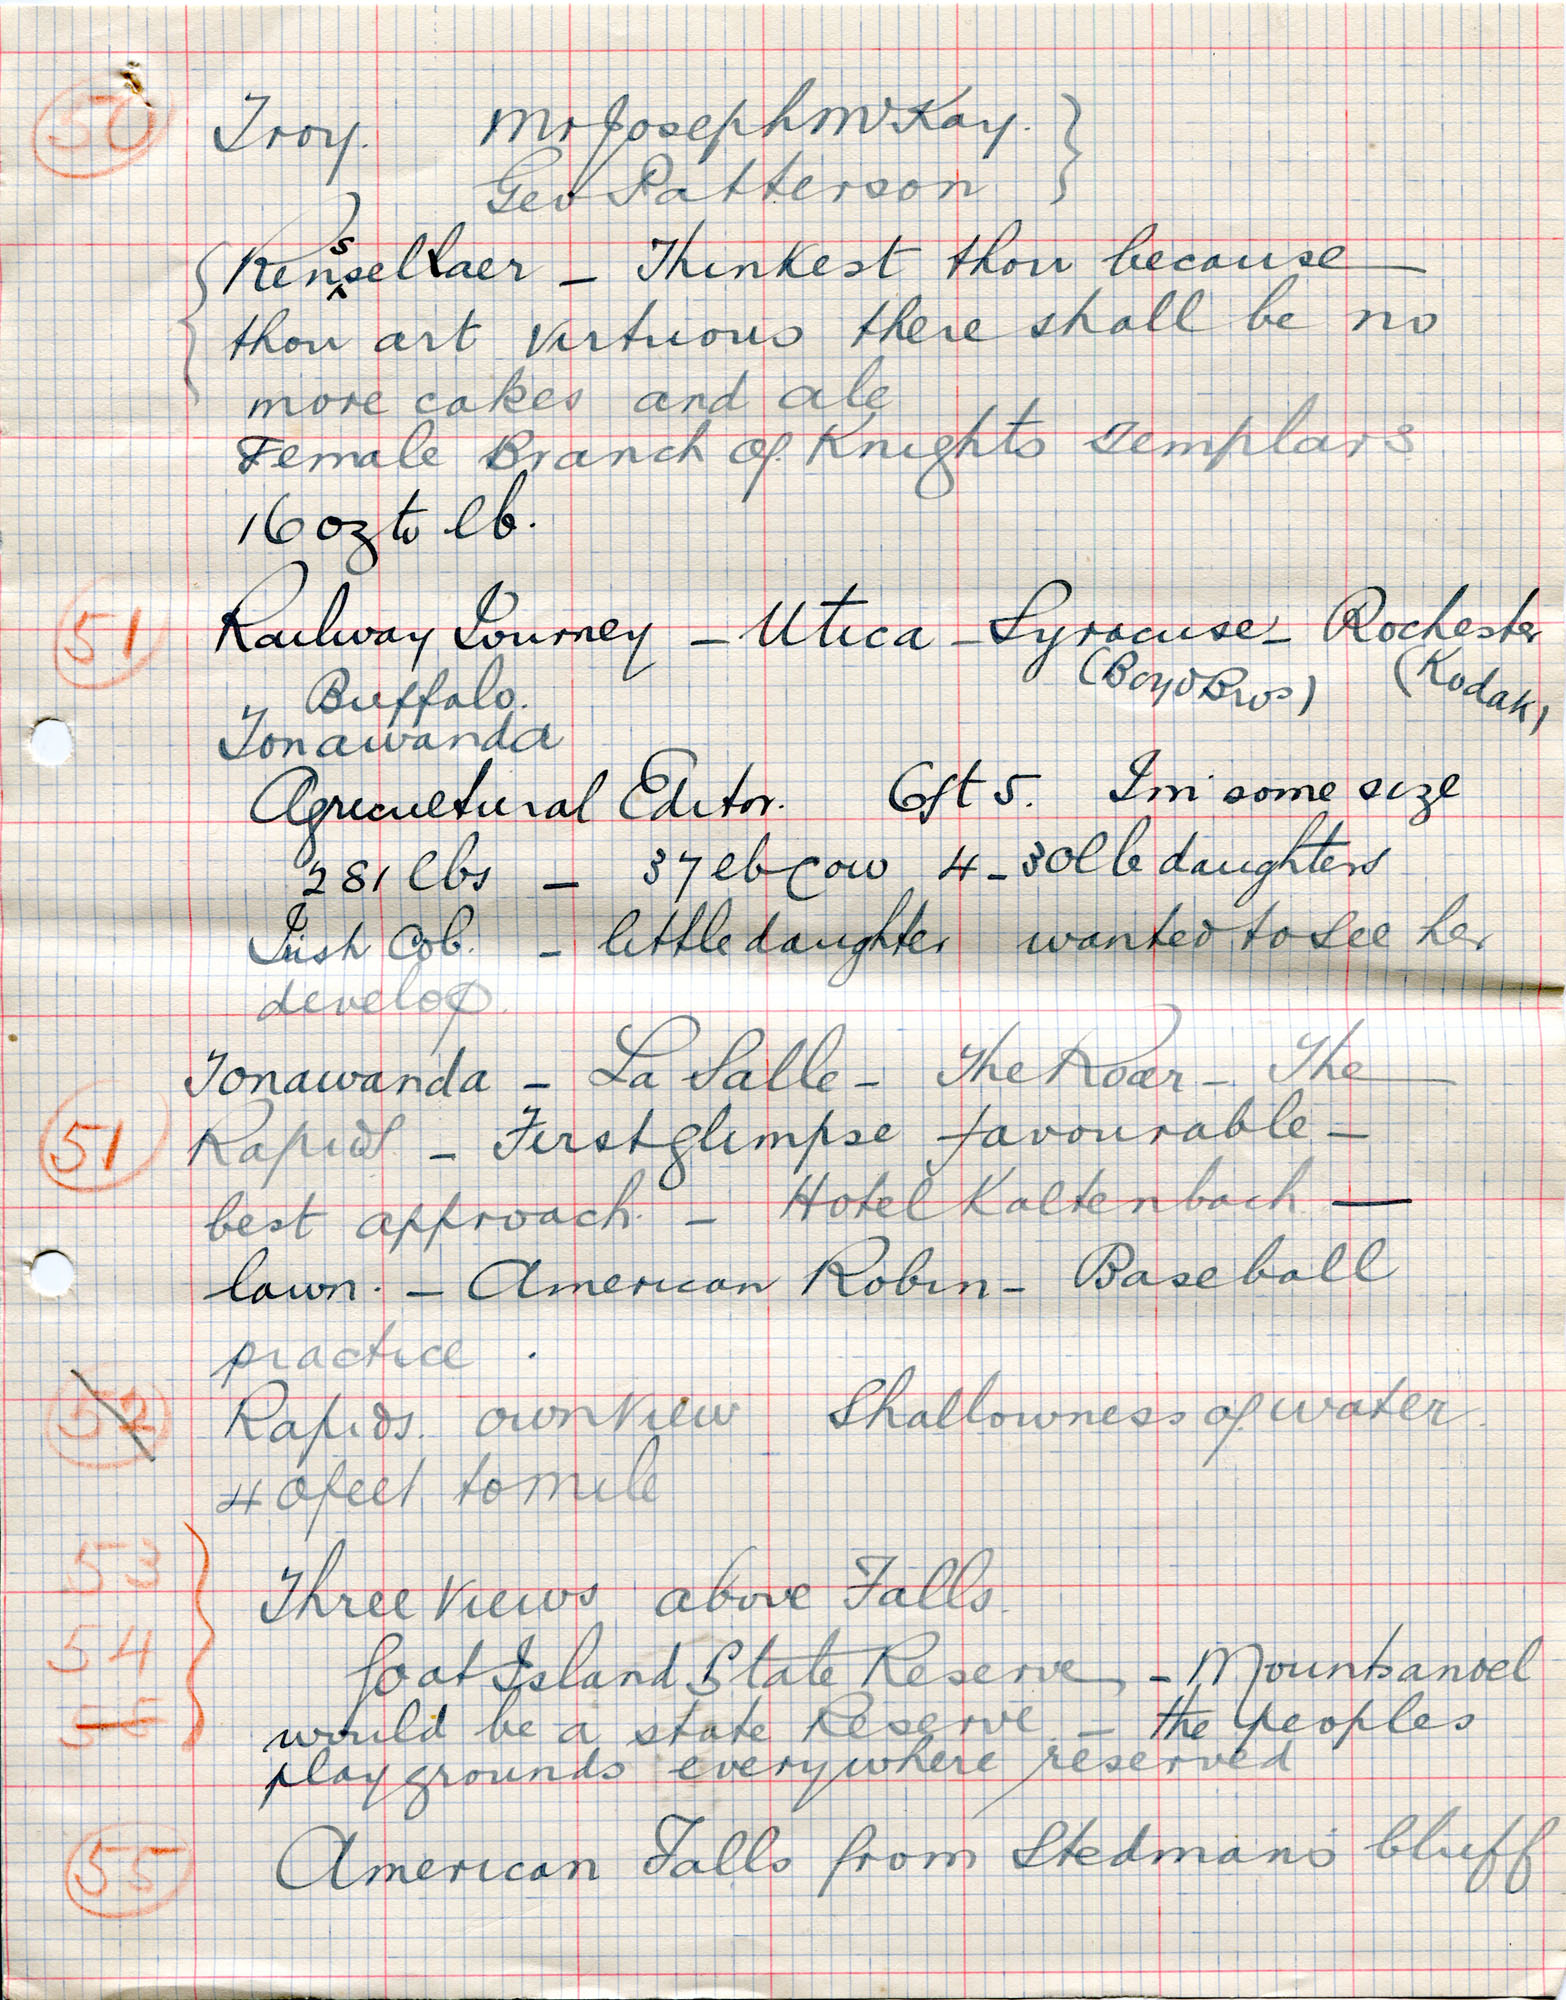 50 Troy. Mr Joseph McKay.
Geo Patterson
Rensselaer – Thinkest thou because
thou art virtuous there shall be no
more cakes and ale
Female Branch of Knights Templars
16 oz to lb.
51 Railway Journey – Utica – Syracuse – Rochester
Buffalo. (Boyd Bros) (Kodak)
Tonawanda
Agricultural Editor. 6ft 5. I'm some size
281 lbs – 37 lb cow 4 – 30 lb daughters
Irish Cob. – little daughter wanted to see her
develop.
Tonawanda – La Salle – The Roar – The
51 Rapids – First glimpse favourable –
best approach. – Hotel Kaltenbach –
lawn. – American Robin – Baseball
practice.
52 Rapids. own view Shallowness of water.
40 feet to mile
53
Three views above Falls.
54 Goat Island State Reserve – Mountsandel
55 would be a state Reserve – the peoples
playgrounds everywhere reserved
55 American Falls from Stedman's bluff